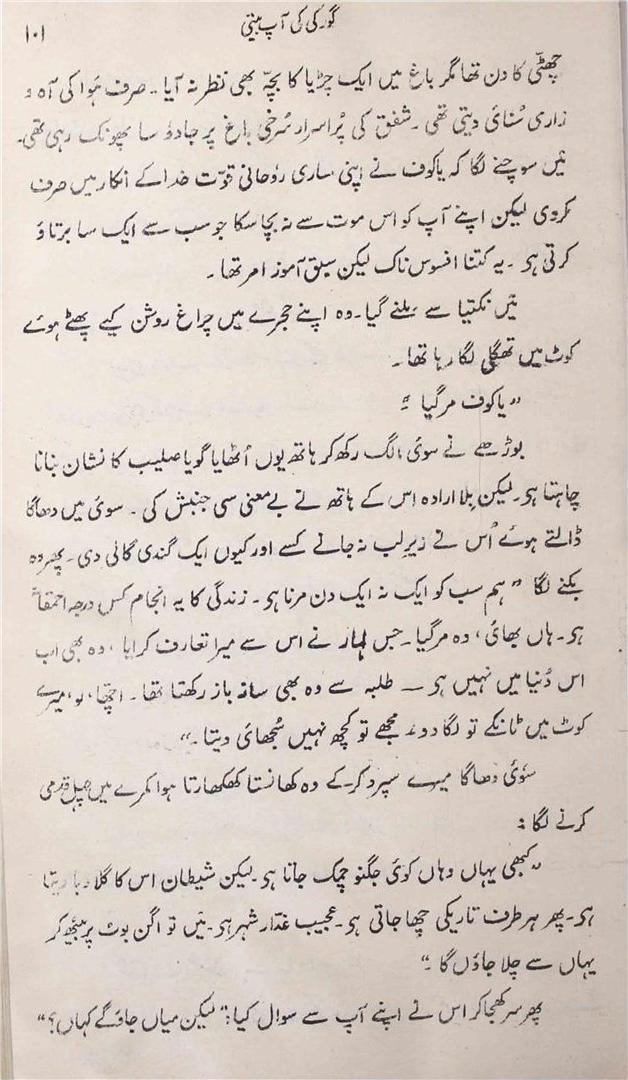 گورکی کی آپ بیتی
۱۰۱
چھٹی کا دن تھا مگر باغ میں ایک چڑیا کا بچّہ بھی نظر نہ آیا۔ صرف ہوا کی آہ و
زاری سُنائی دیتی تھی۔ شفق کی پُراسرار سُرخی باغ پر جادو سا پھونک رہی تھی۔
مَیں سوچنے لگا کہ یاکوف نے اپنی ساری روحانی قوّت خدا کے انکار میں صرف
کردی لیکن اپنے آپ کو اس موت سے نہ بچا سکا جو سب سے ایک سا برتاؤ
کرتی ہی۔ یہ کتنا افسوس ناک لیکن سبق آموز امر تھا۔
مَیں نکتیا سے ملنے گیا۔ وہ اپنے حجرے میں چراغ روشن کیے پھٹے ہوئے
کوٹ میں تھگلی لگا رہا تھا۔
"یاکوف مرگیا۔"
بوڑھے نے سوئی الگ رکھ کر ہاتھ یوں اُٹھایا گویا صلیب کا نشان بنانا
چاہتا ہی۔ لیکن بلا ارادہ اس کے ہاتھ نے بے معنی سی جنبش کی۔ سوئی میں دھاگا
ڈالتے ہوئے اُس نے زیرِلب نہ جانے کسے اور کیوں ایک گندی گالی دی۔ پھر وہ
بکنے لگا "ہم سب کو ایک نہ ایک دن مرنا ہی۔ زندگی کا یہ انجام کس درجہ احمقانہ
ہی۔ ہاں بھائی، وہ مرگیا۔ جس لہار نے اس سے میرا تعارف کرایا، وہ بھی اب
اس دُنیا میں نہیں ہی — طلبہ سے وہ بھی سانٹھ باز رکھتا تھا۔ اچھّا، لو، میرے
کوٹ میں ٹانکے تو لگا دو۔ مجھے تو کچھ نہیں سُجھائی دیتا۔"
سُوئی دھاگا میرے سپرد کر کے وہ کھانستا کھکھارتا ہوا کمرے میں چہل قدمی
کرنے لگا:
"کبھی یہاں وہاں کوئی جگنو چمک جاتا ہی۔ لیکن شیطان اس کا گلا دبا دیتا
ہی۔ پھر ہر طرف تاریکی چھا جاتی ہی۔ عجیب غدّار شہر ہی۔ مَیں تو اگن بوٹ پر بیٹھ کر
یہاں سے چلا جاؤں گا۔"
پھر سر کھجا کر اس نے اپنے آپ سے سوال کیا: "لیکن میاں جاؤگے کہاں؟"